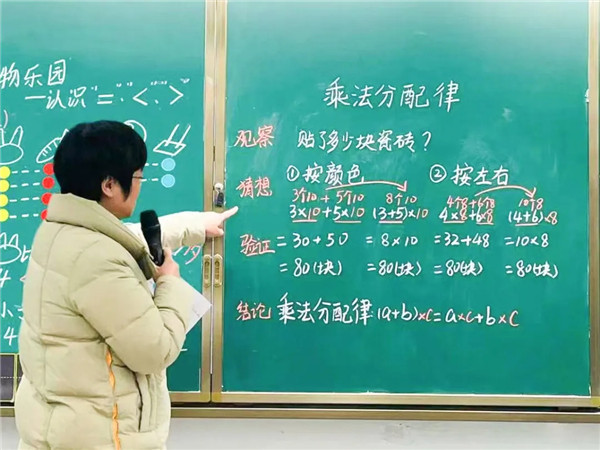 物乐园
一认识"=""<"">"
乘法分配律
观察 贴了多少块瓷砖？
猜想 ①按颜色 ②按左右
3个10+5个10 8个10 4个8+6个8 10个8
3×10+5×10 (3+5)×10 4×8+6×8 (4+6)×8
验证 =30+50 =8×10 =32+48 =10×8
=80(块) =80(块) =80(块) =80(块)
结论 乘法分配律:(a+b)×c=a×c+b×c